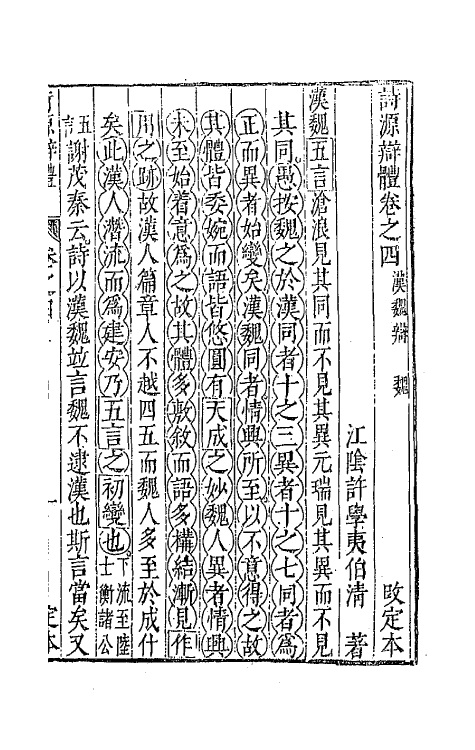 詩源辯體卷之四 漢魏辯 魏 攺定本
江陰許學夷伯清 著
漢魏五言滄浪見其同而不見其異元瑞見其異而不見
其同愚按魏之於漢同者十之三異者十之七同者爲
正而異者始變矣漢魏同者情興所至以不意得之故
其體皆委婉而語皆悠圓有天成之妙魏人異者情興
未至始着意爲之故其體多敷敘而語多構結漸見作
用之跡故漢人篇章人不越四五而魏人多至於成什
矣此漢人潛流而爲建安乃五言之初變也下流至陸士衡諸公
五言
謝茂秦云詩以漢魏並言魏不逮漢也斯言當矣又